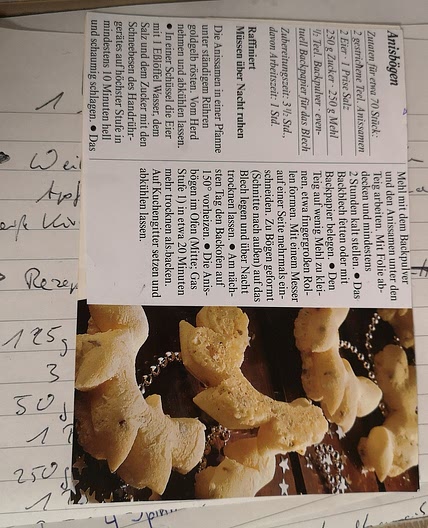 Anisbögen
Zutaten für etwa 70 Stück:
2 gestrichene Teel. Anissamen
2 Eier · 1 Prise Salz
250 g Zucker · 250 g Mehl
½ Teel. Backpulver · even-
tuell Backpapier für das Blech
Zubereitungszeit: 3 ½ Std.,
davon Arbeitszeit: 1 Std.
Raffiniert
Müssen über Nacht ruhen
Die Anissamen in einer Pfanne
unter ständigem Rühren
goldgelb rösten. Vom Herd
nehmen und abkühlen lassen.
• In einer Schüssel die Eier
mit 1 Eßlöffel Wasser, dem
Salz und dem Zucker mit den
Schneebesen des Handrühr-
gerätes auf höchster Stufe in
mindestens 10 Minuten hell
und schaumig schlagen. • Das
Mehl mit dem Backpulver
und den Anissamen unter den
Teig arbeiten. Mit Folie ab-
decken und mindestens
2 Stunden kalt stellen. • Das
Backblech fetten oder mit
Backpapier belegen. • Den
Teig auf wenig Mehl zu klei-
nen, etwa fingergroßen Rol-
len formen. Mit einem Messer
auf einer Seite mehrmals ein-
schneiden. Zu Bögen geformt
(Schnitte nach außen) auf das
Blech legen und über Nacht
trocknen lassen. • Am näch-
sten Tag den Backofen auf
150° vorheizen. • Die Anis-
bögen im Ofen (Mitte; Gas
Stufe 1) in etwa 20 Minuten
mehr trocknen als backen.
Auf Kuchengitter setzen und
abkühlen lassen.
1
• Wei
Apf
• Rezep
125g
3
50g
1
250g
1